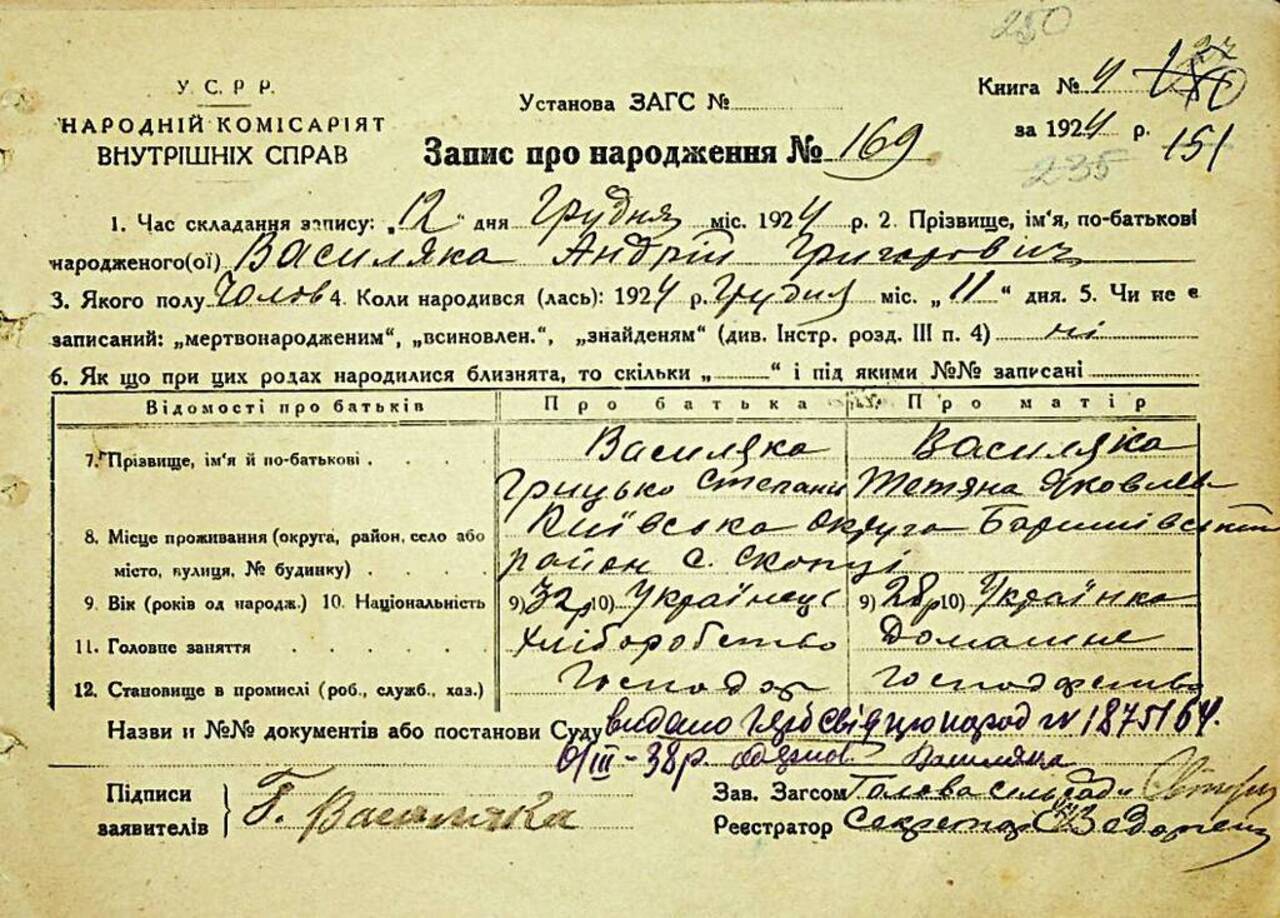 250
У. С. Р. Р.
НАРОДНІЙ КОМІСАРІЯТ
ВНУТРІШНІХ СПРАВ
Установа ЗАГС №
Книга № 4
за 1924 р. 151
235
Запис про народження № 169
1. Час складання запису: „12" дня Грудня міс. 1924 р. 2. Прізвище, ім'я, по-батькові
народженого(ої) Василяка Андрій Григорович
3. Якого полу Чолов 4. Коли народився (лась): 1924 р. Грудня міс. „11" дня. 5. Чи не є
записаний: „мертвонародженим", „всиновлен.", „знайденям" (див. Інстр. розд. III п. 4) ні
6. Як що при цих родах народилися близнята, то скільки „ " і під якими №№ записані
Відомості про батьків Про батька Про матір
7. Прізвище, ім'я й по-батькові Василяка Василяка
Грицько Степани Тетяна Яковлев
8. Місце проживання (округа, район, село або Київська округа Баришівський
місто, вулиця, № будинку) район с. Скопці
9. Вік (років од народж.) 10. Національність 9) 32р 10) Українець 9) 28р 10) Українка
11. Головне заняття Хліборобство Домашне
12. Становище в промислі (роб., служб., хаз.) Господар господарство
Назви и №№ документів або постанови Суду видано № 1875164.
6/III-38р. Василяка
Підписи
заявителів Г. Василяка
Зав. Загсом Голова сільради
Реєстратор Секретар